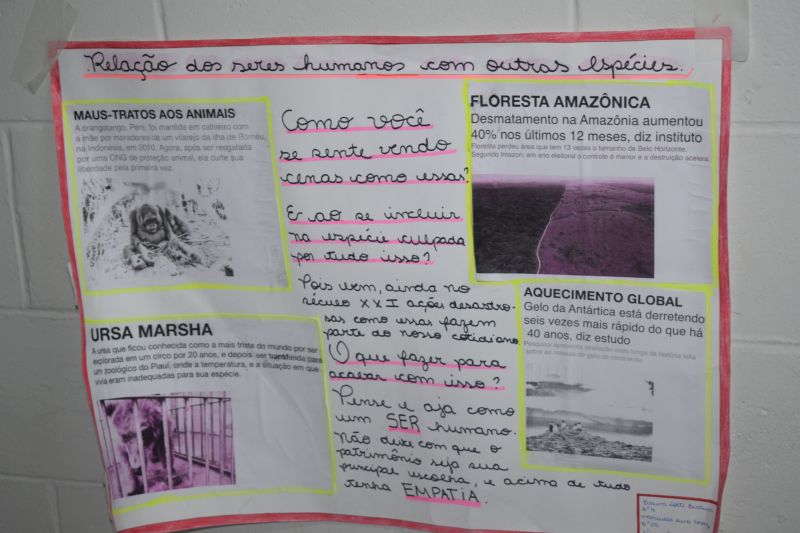 Relação dos seres humanos com outras espécies.
MAUS-TRATOS AOS ANIMAIS
A orangotango, Peni, foi mantida em cativeiro com
a mãe por moradores de um vilarejo da ilha de Borneu,
na Indonésia, em 2010. Agora, após ser resgatada
por uma ONG de proteção animal, ela curte sua
liberdade pela primeira vez.
URSA MARSHA
A ursa que ficou conhecida como a mais triste do mundo por ser
explorada em um circo por 20 anos, e depois ser transferida para
um zoológico do Piauí, onde a temperatura, e a situação em que
vivia eram inadequadas para sua espécie.
Como você
se sente vendo
cenas como essas?
E ao se incluir
na espécie culpada
por tudo isso?
Pois bem, ainda no
século XXI ações desastro-
sas como essas fazem
parte do nosso cotidiano.
O que fazer para
acabar com isso?
Pense e aja como
um SER humano.
Não deixe com que o
patrimônio seja sua
principal escolha, e acima de tudo
tenha EMPATIA.
FLORESTA AMAZÔNICA
Desmatamento na Amazônia aumentou
40% nos últimos 12 meses, diz instituto
Floresta perdeu área que tem 13 vezes o tamanho de Belo Horizonte.
Segundo Imazon, em ano eleitoral o controle é menor e a destruição acelera.
AQUECIMENTO GLOBAL
Gelo da Antártica está derretendo
seis vezes mais rápido do que há
40 anos, diz estudo
Pesquisa apresenta avaliação mais longa da história feita
sobre as massas de gelo do continente.